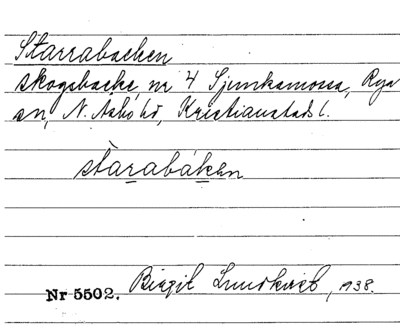 Starrabacken
skogsbacke, nr 4 Sjunkamossa, Rya
sn, N. Åsbo hd, Kristianstads l.
starabáken
Nr 5502. Birgit Lundkvist, 1938.